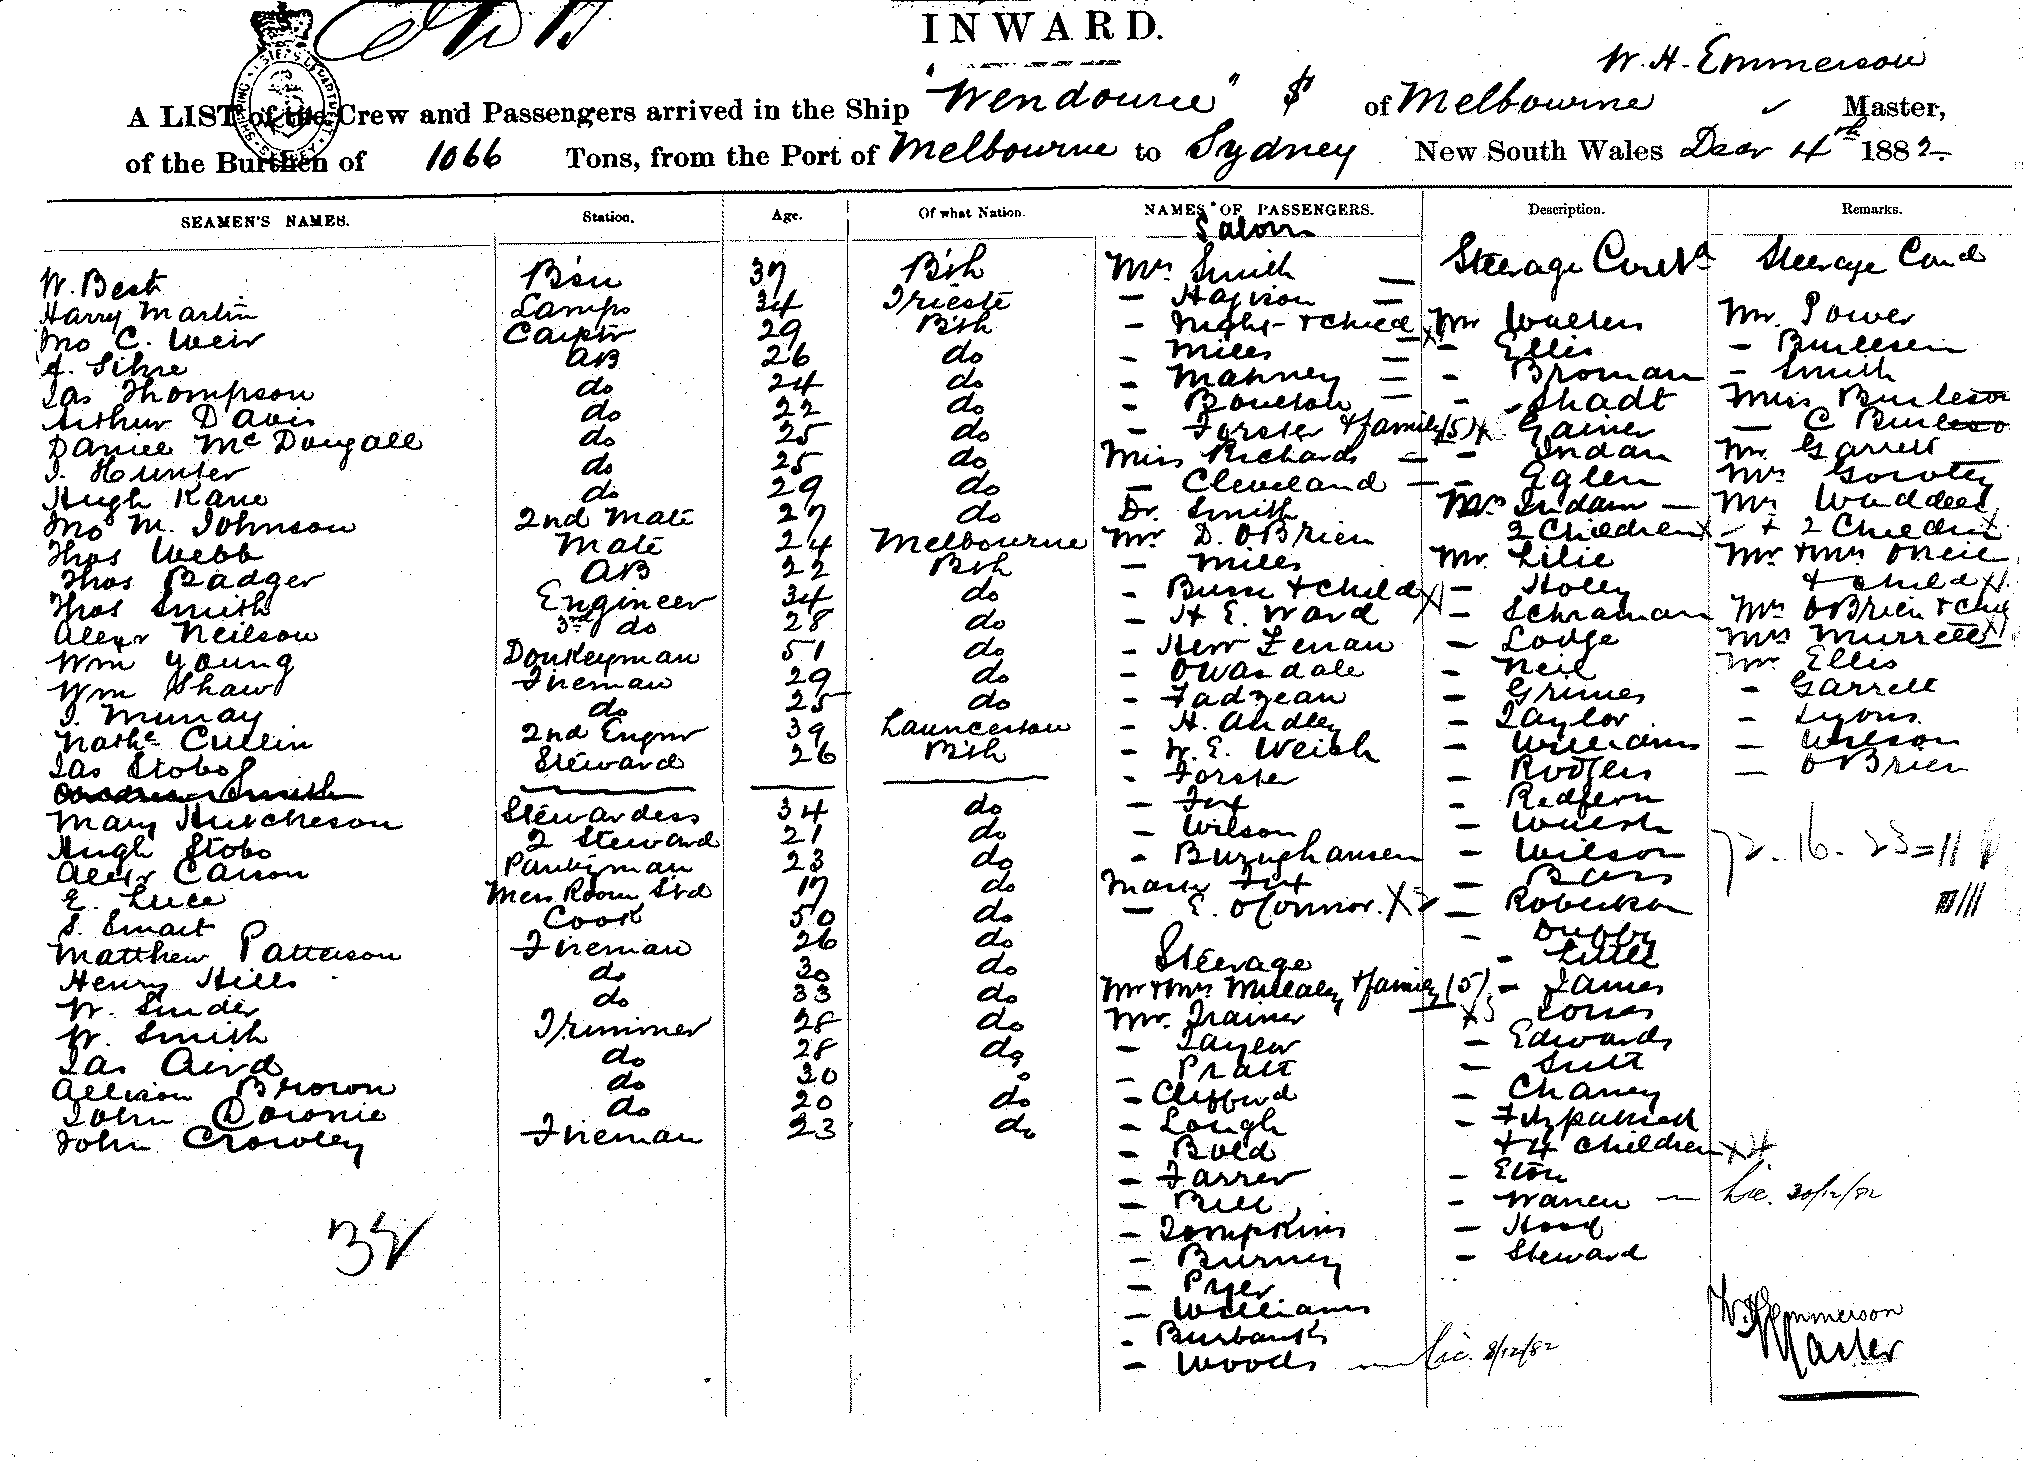 INWARD.
W. H. Emmerson
A LIST of the Crew and Passengers arrived in the Ship "Wendouree" S of Melbourne Master,
of the Burthen of 1066 Tons, from the Port of Melbourne to Sydney New South Wales Decr 4th 1882.
SEAMEN'S NAMES. Station. Age. Of what Nation. NAMES OF PASSENGERS. Description. Remarks.
W. Best Bsn 37 Bsh
Harry Martin Lamps 34 Trieste
Jno C. Weir Carptr 29 Bsh
26 do AB
Jas Thompson do 24 do
Arthur Davis do 22 do
Daniel McDougall do 25 do
J. Hunter do 25 do
Hugh Kane do 29 do
Jno M. Johnson 2nd Mate 27 do
Thos Webb Mate 24 Melbourne
Thos Badger AB 22 Bsh
Thos Smith Engineer 34 do
Alexr Neilson 3rd do 28 do
Wm Young Donkeyman 51 do
Wm Shaw Fireman 29 do
J. Murray do 25 do
Nathl Cullin 2nd Engnr 39 Launceston
Jas Stobs Steward 26 Bsh
Smith
Mary Hutcheson Stewardess 34 do
Hugh Stobo 2 Steward 21 do
Alexr Carson Pantryman 23 do
E. Luce Mess Room Std 17 do
S. Smart Cook 50 do
Matthew Patterson Fireman 26 do
Henry Hills do 30 do
W. Sunder do 33 do
W. Smith Trimmer 28 do
Jas Aird do 28 do
Allison Brown do 30 o
John Downie do 20 do
John Crowley Fireman 23 do
Saloon
Mrs Smith
- Hagison
- Night + child
- Miles
- Mahney
- Boulton
- Forster + family (5)
Miss Richards
- Cleveland
Dr. Smith
Mr. D. OBrien
- Miles
- Busse + child
- H E. Ward
- Herr Lenau
- Owardale
- Fadgean
- H. Audley
- W. E. Welsh
- Forster
- Fox
- Wilson
- Burughausen
Mastr Fox
- E. OConnor.
Steerage
Mr + Mrs Mullaly + family (5)
Mr. Trainer
- Taylor
- Pratt
- Clifford
- Lough
- Bold
- Farrer
- Bill
- Tompkins
- Burney
- Pyer
- Williams
- Burbanks
- Woods Lic. 8/12/82
Steerage Contd
Mr Walters
- Ellis
- Broman
- Shadt
- Gainer
- Indan
- Eglen
Mrs Indan
2 Children
Mr. Lilie
- Holey
- Schraman
- Lodge
- Neil
- Grimes
- Taylor
- Williams
- Rodgers
- Redfern
- Walsh
- Wilson
- Bass
- Robertson
- Duffy
- Little
- James
Jones
- Edwards
- Sutt
- Chaney
- Fitzpatrick
+ 4 children
- Eton
- Warren Lic. 30/12/82
- Hood
- Steward
Steerage Cond
Mr. Power
- Burleson
- Smith
Miss Burleson
- C Burleson
Mr. Garrett
Mrs Gorotey
Mrs Waddell
+ 2 Children
Mr + Mrs ONeil
+ child
Mrs OBrien + chd
Mrs Murrell
Mr. Ellis
- Garrett
- Lyons
- Wilson
- OBrien
72. 16. 23 = 11
W. H. Emmerson
Master